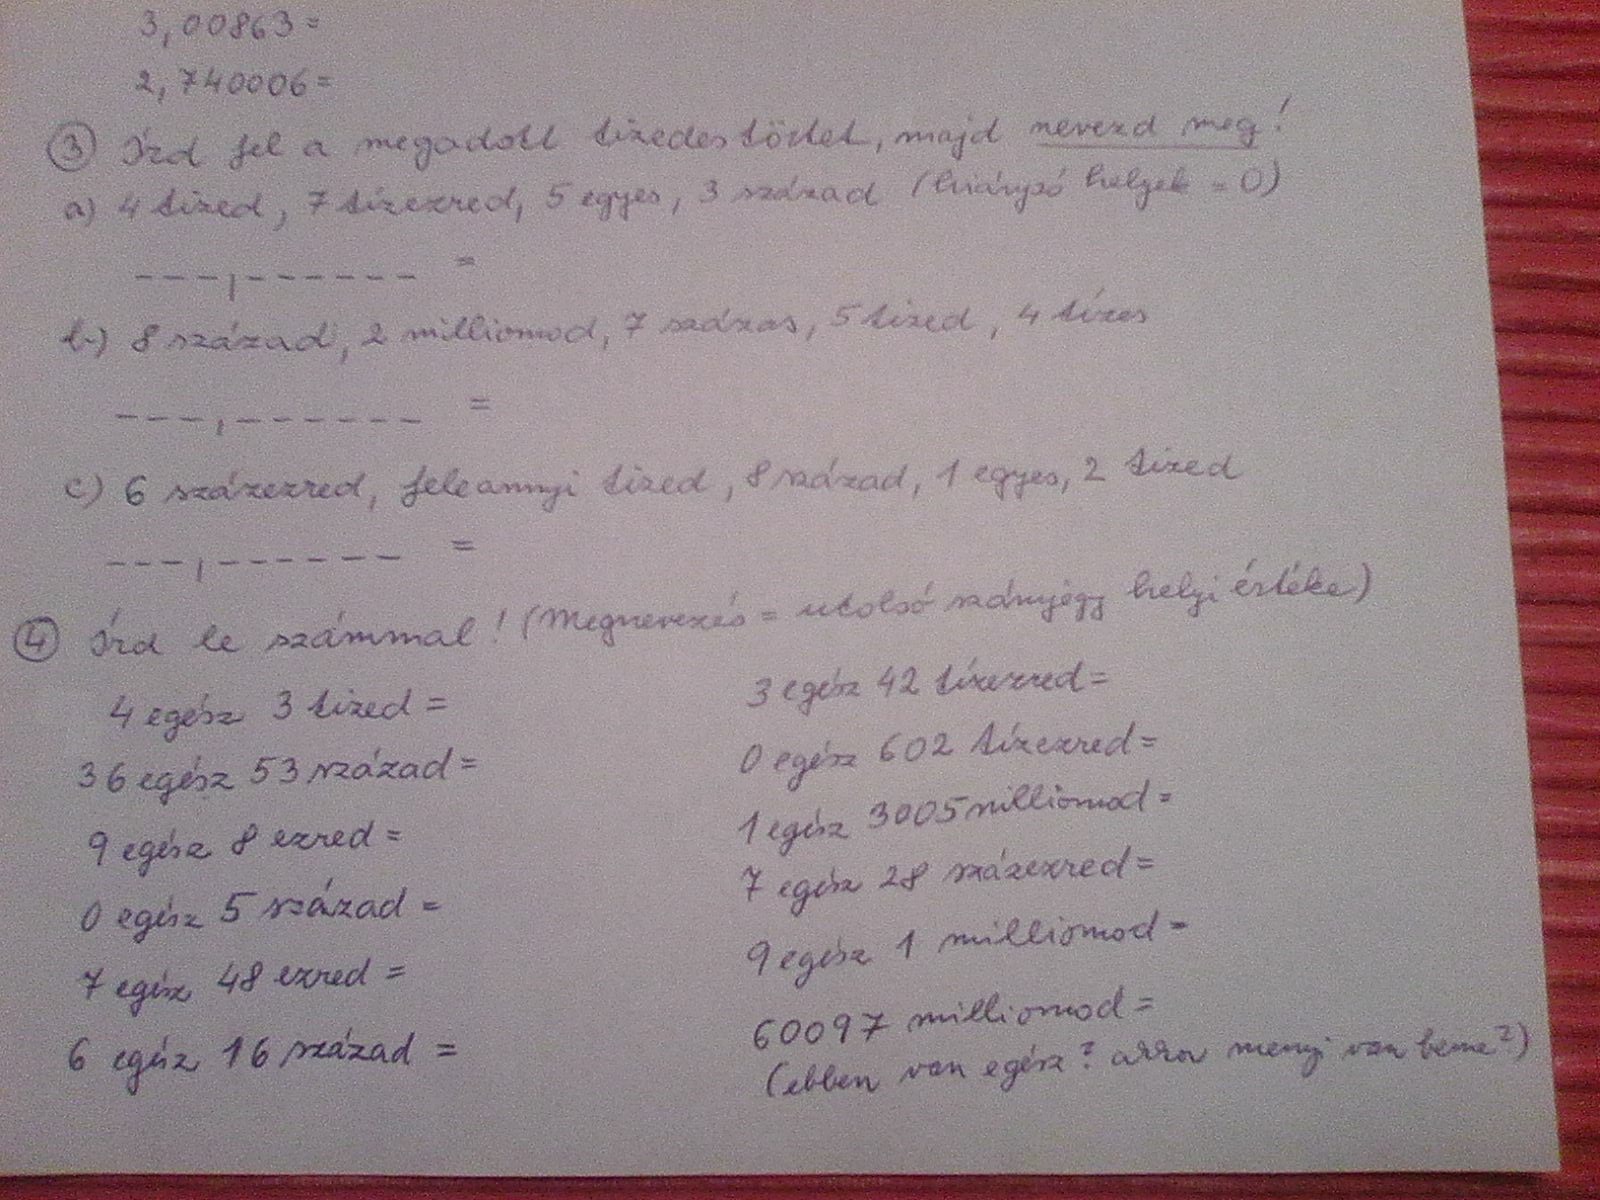 3,00863=
2,740006=
③ Írd fel a megadott tizedestörtet, majd nevezd meg!
a) 4 tized, 7 tízezred, 5 egyes, 3 század (hiányzó helyek = 0)
_ _ _ , _ _ _ _ _ _ =
b) 8 század, 2 milliomod, 7 százas, 5 tized, 4 tízes
_ _ _ , _ _ _ _ _ _ =
c) 6 százezred, feleannyi tized, 8 század, 1 egyes, 2 tized
_ _ _ , _ _ _ _ _ _ =
④ Írd le számmal! (Megnevezés = utolsó számjegy helyi értéke)
4 egész 3 tized =
36 egész 53 század =
9 egész 8 ezred =
0 egész 5 század =
7 egész 48 ezred =
6 egész 16 század =
3 egész 42 tízezred =
0 egész 602 tízezred =
1 egész 3005 milliomod =
7 egész 28 százezred =
9 egész 1 milliomod =
60097 milliomod =
(ebben van egész? arra menyi van benne?)